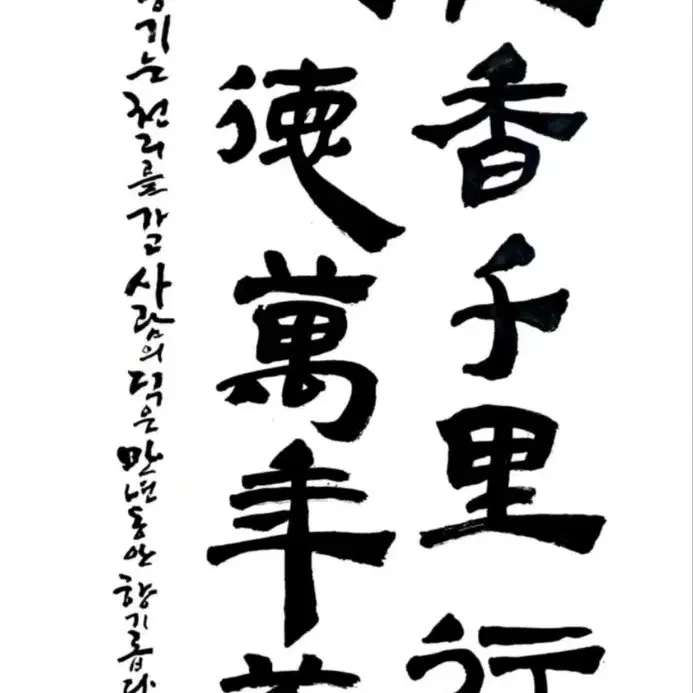 香千里行
徳萬年
기는 천리를 가고 사람의 덕은 만년동안 향기롭다